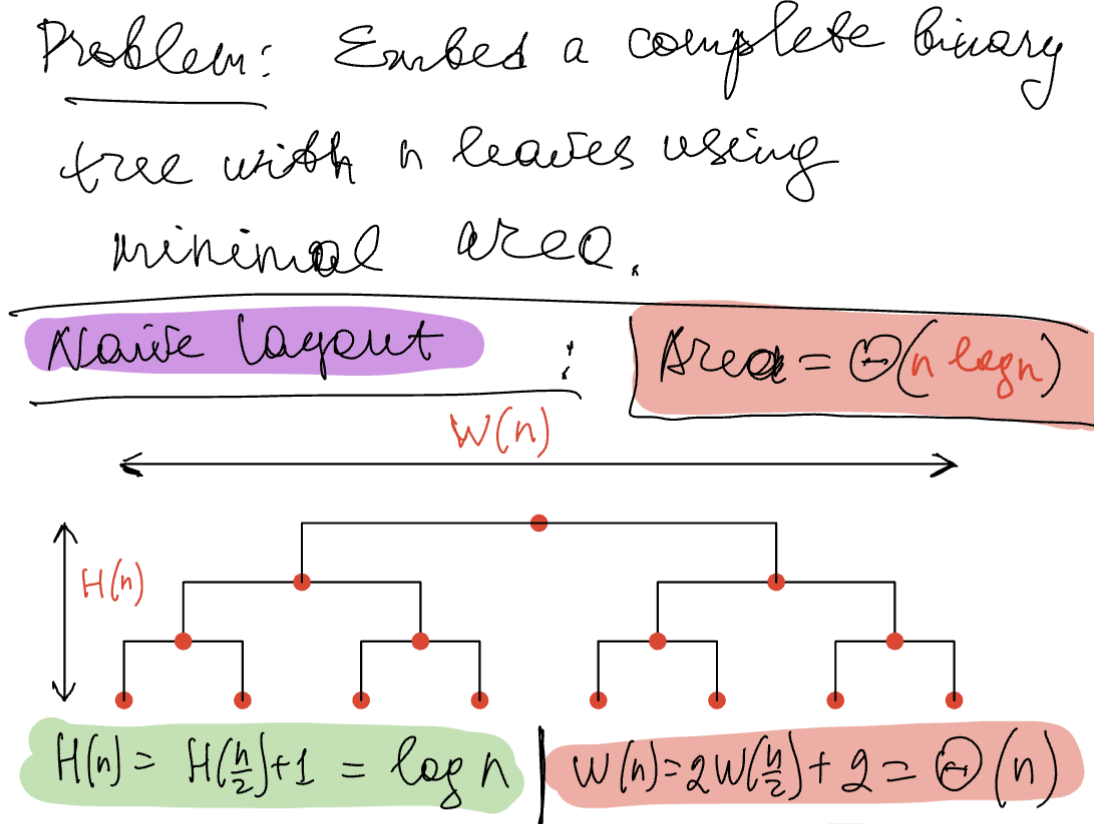 Problem: Embed a complete binary
tree with n leaves using
minimal area.
Naive layout : Area = Θ(n log n)
W(n)
H(n)
H(n) = H(n/2)+1 = log n | W(n)=2W(n/2)+2 = Θ(n)